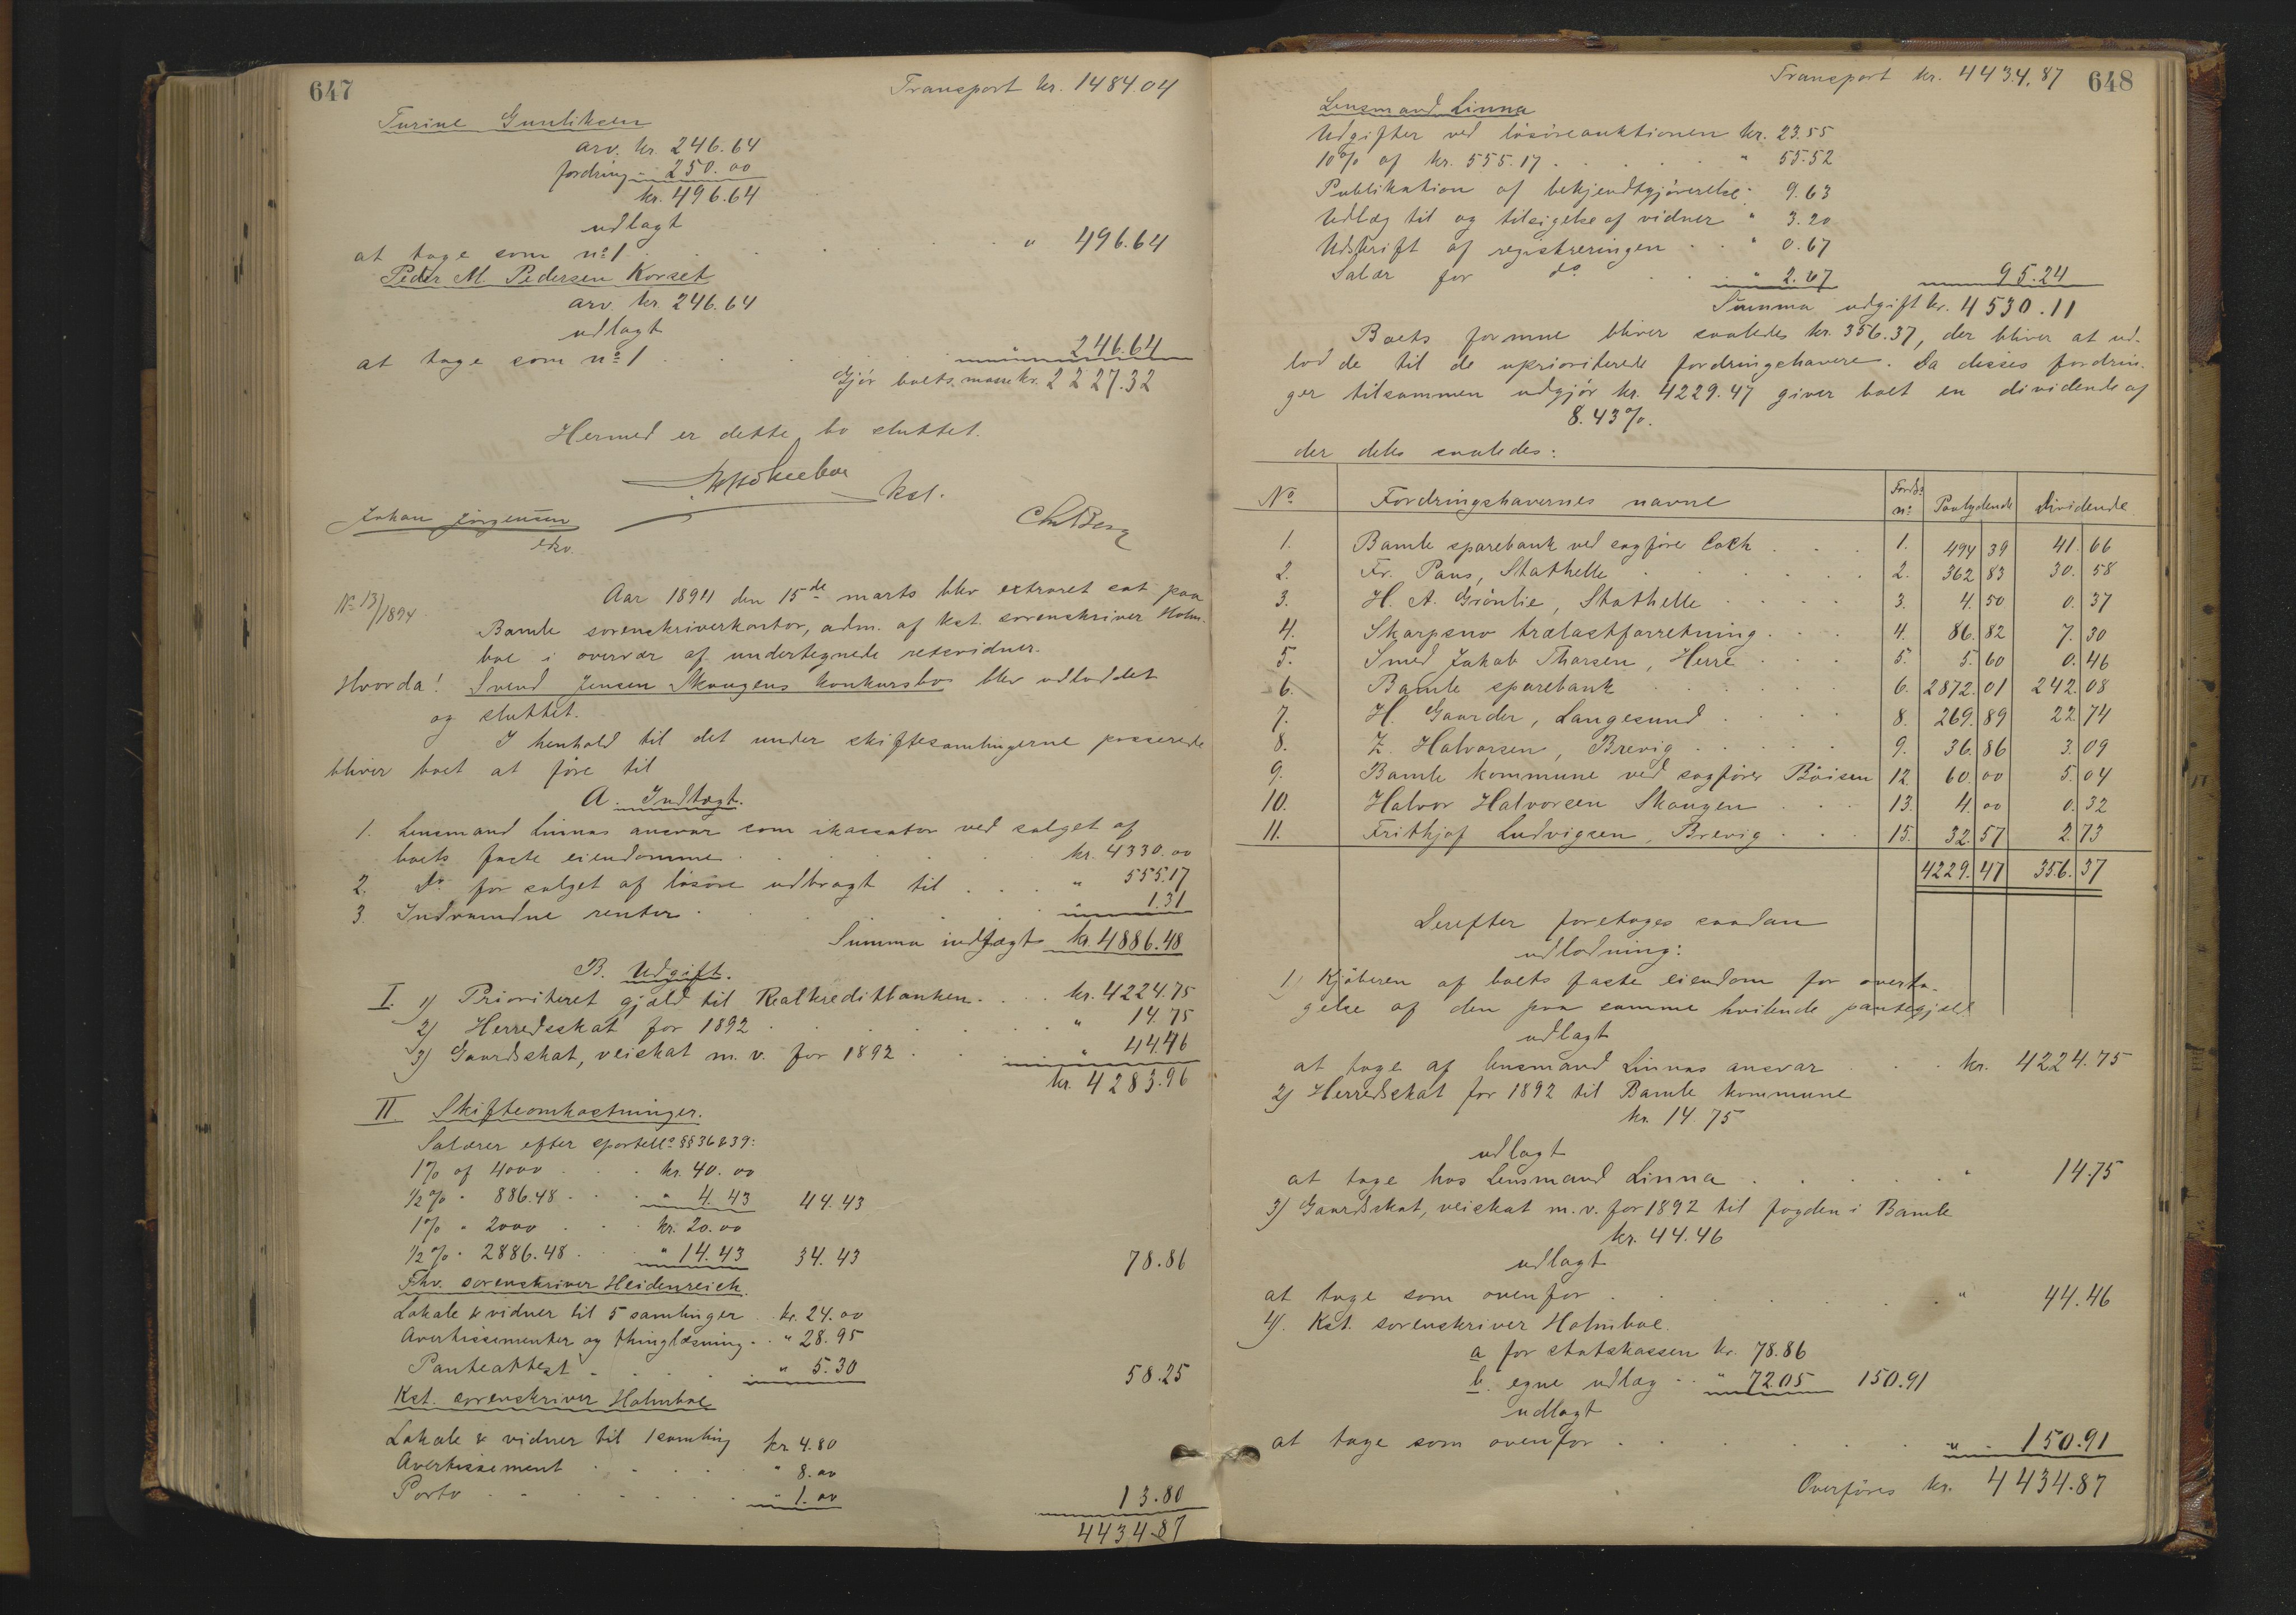 647
Transport kr. 1484.04
Turine Gunliksen
arv. kr. 246.64
fordring - 250.00
kr. 496.64
udlagt
at tage som no 1 . . . . " 496.64
Peder M. Pedersen Korset
arv. kr. 246.64
udlagt
at tage som no 1 . . . . " 246.64
Gjør boets masse kr. 2227.32
Hermed er dette bo sluttet.
kst.
Johan Jörgensen
ekv.
Chr Berg
No 13/1894
Aar 1894 den 15de marts blev extraret sat paa
Bamle sorenskriverkontor, adm. af kst. sorenskriver Holm-
boe i overvær af undertegnede retsvidner.
Hvorda! Svend Jensen Skougens konkursbo blev udloddet
og sluttet.
I henhold til det under skiftesamlingerne passerede
bliver boet at føre til
A. Indtægt.
1. Lensmand Linnas ansvar som ikassator ved salget af
boets faste eiendomme . . . . kr. 4330.00
2. Do for salget af løsøre udbragt til . . . " 555.17
3. Indvundne renter . . . . " 1.31
Summa indtægt kr. 4886.48
B. Udgift.
I. 1) Prioriteret gjæld til Realkreditbanken . . . kr. 4224.75
2) Herredsskat for 1892 . . . . " 14.75
3) Gaardskat, veiskat m. v. for 1892 . . . " 44.46
kr. 4283.96
II Skifteomkostninger.
Salærer efter sportell. §§ 36 & 39:
1% af 4000 . . . kr. 40.00
1/2% " 886.48 . . . " 4.43 44.43
1% " 2000 . . . kr. 20.00
1/2% " 2886.48 . . " 14.43 34.43 78.86
Fhv. sorenskriver Heidenreich.
Lokale & vidner til 5 samlinger . kr. 24.00
Avertissementer og thinglæsning . . " 28.95
Panteattest . . . . " 5.30 58.25
Kst. sorenskriver Holmboe
Lokale & vidner til 1 samling kr 4.80
Avertissement . . . . " 8.00
Porto . . . . " 1.00 13.80
4434.87
Transport kr. 4434.87 648
Lensmand Linna
Udgifter ved løsøreauktionen kr. 23.55
10% af kr. 555.17 . . . . " 55.52
Publikation af bekjendtgjørerelse . 9.63
Udlæg til og tilsigelse af vidner " 3.20
Udskrift af registreringen . . " 0.67
Salær for do . . . " 2.67 95.24
Summa udgift kr. 4530.11
Boets formue bliver saaledes kr. 356.37, der bliver at ud-
lodde til de uprioriterede fordringshavere. Da disses fordrin-
ger tilsammen udgjør kr. 4229.47 giver boet en dividende af
8.43%.
der deles saaledes:
No Fordringshavernes navne Fords. no Paalydende Dividende
1. Bamle sparebank ved sagfører Coch . . . 1. 494 39 41. 66
2. Fr. Paus, Stathelle . . . . 2. 362 83 30. 58
3. H. A. Grönlie, Stathelle . . . . 3. 4. 50 0. 37
4. Skarpsno trælastforretning . . . 4. 86. 82 7. 30
5. Smed Jakob Thorsen, Herre . . . 5. 5. 60 0. 46
6. Bamle sparebank . . . . 6. 2872. 01 242. 08
7. H. Gaarder, Langesund . . . . 8. 269. 89 22. 74
8. Z. Halvorsen, Brevig . . . . 9. 36. 86 3. 09
9. Bamle kommune ved sagfører Böisen 12. 60. 00 5. 04
10. Halvor Halvorsen Skougen . . . 13. 4. 00 0. 32
11. Frithjof Ludvigsen, Brevig . . . 15. 32. 57 2. 73
4229. 47 356. 37
Derefter foretoges saadan
udlodning:
1) Kjøberen af boets faste eiendom for overta-
gelse af den paa samme hvilende pantegjæld
udlagt
at tage af lensmand Linnas ansvar . . . kr. 4224.75
2) Herredskat for 1892 til Bamle kommune
kr. 14.75
udlagt
at tage hos Lensmand Linna . . . . " 14.75
3) Gaardskat, veiskat m. v. for 1892 til fogden i Bamle
kr. 44.46
udlagt
at tage som ovenfor . . . . " 44.46
4). Kst. sorenskriver Holmboe.
a for statskassen kr. 78.86
b. egne udlæg . . " 72.05 150.91
udlagt
at tage som ovenfor . . . . " 150.91
Overføres kr. 4434.87